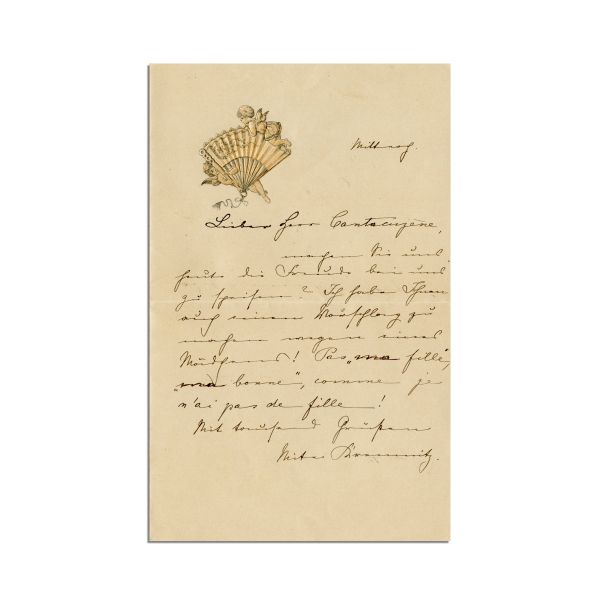 Mittwoch.
Lieber Herr Cantacuzène,
machen Sie uns
heute die Freude bei uns
zu speisen? Ich habe Ihnen
auch einen Vorschlag zu
machen wegen eines
Mädchens! Pas „ma fille",
„ma bonne", comme je
n'ai pas de fille!
Mit tausend Grüßen
Mite Kremnitz.